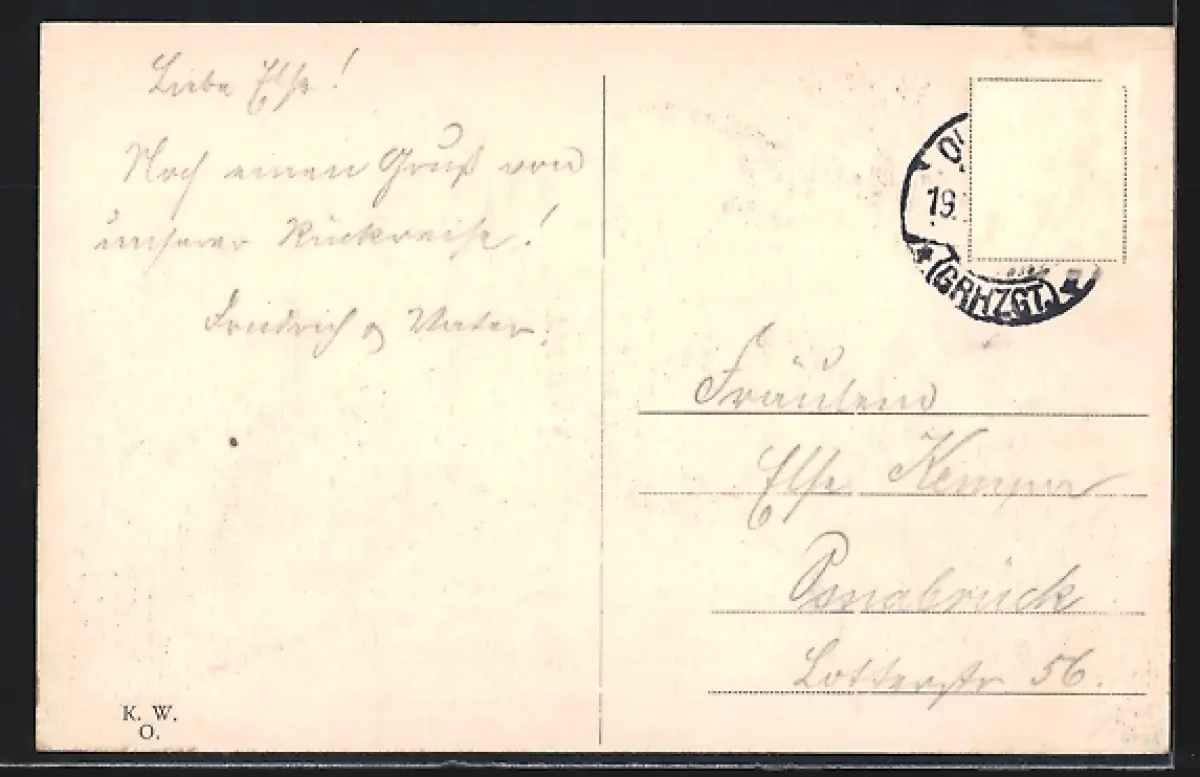 Liebe Else!
Noch einen Gruß von
unserer Rückreise!
Friedrich & Vater.
K. W.
O.
19.
(GRHZGT.)
Fräulein
Else Kemper
Osnabrück
Lotterstr 56.